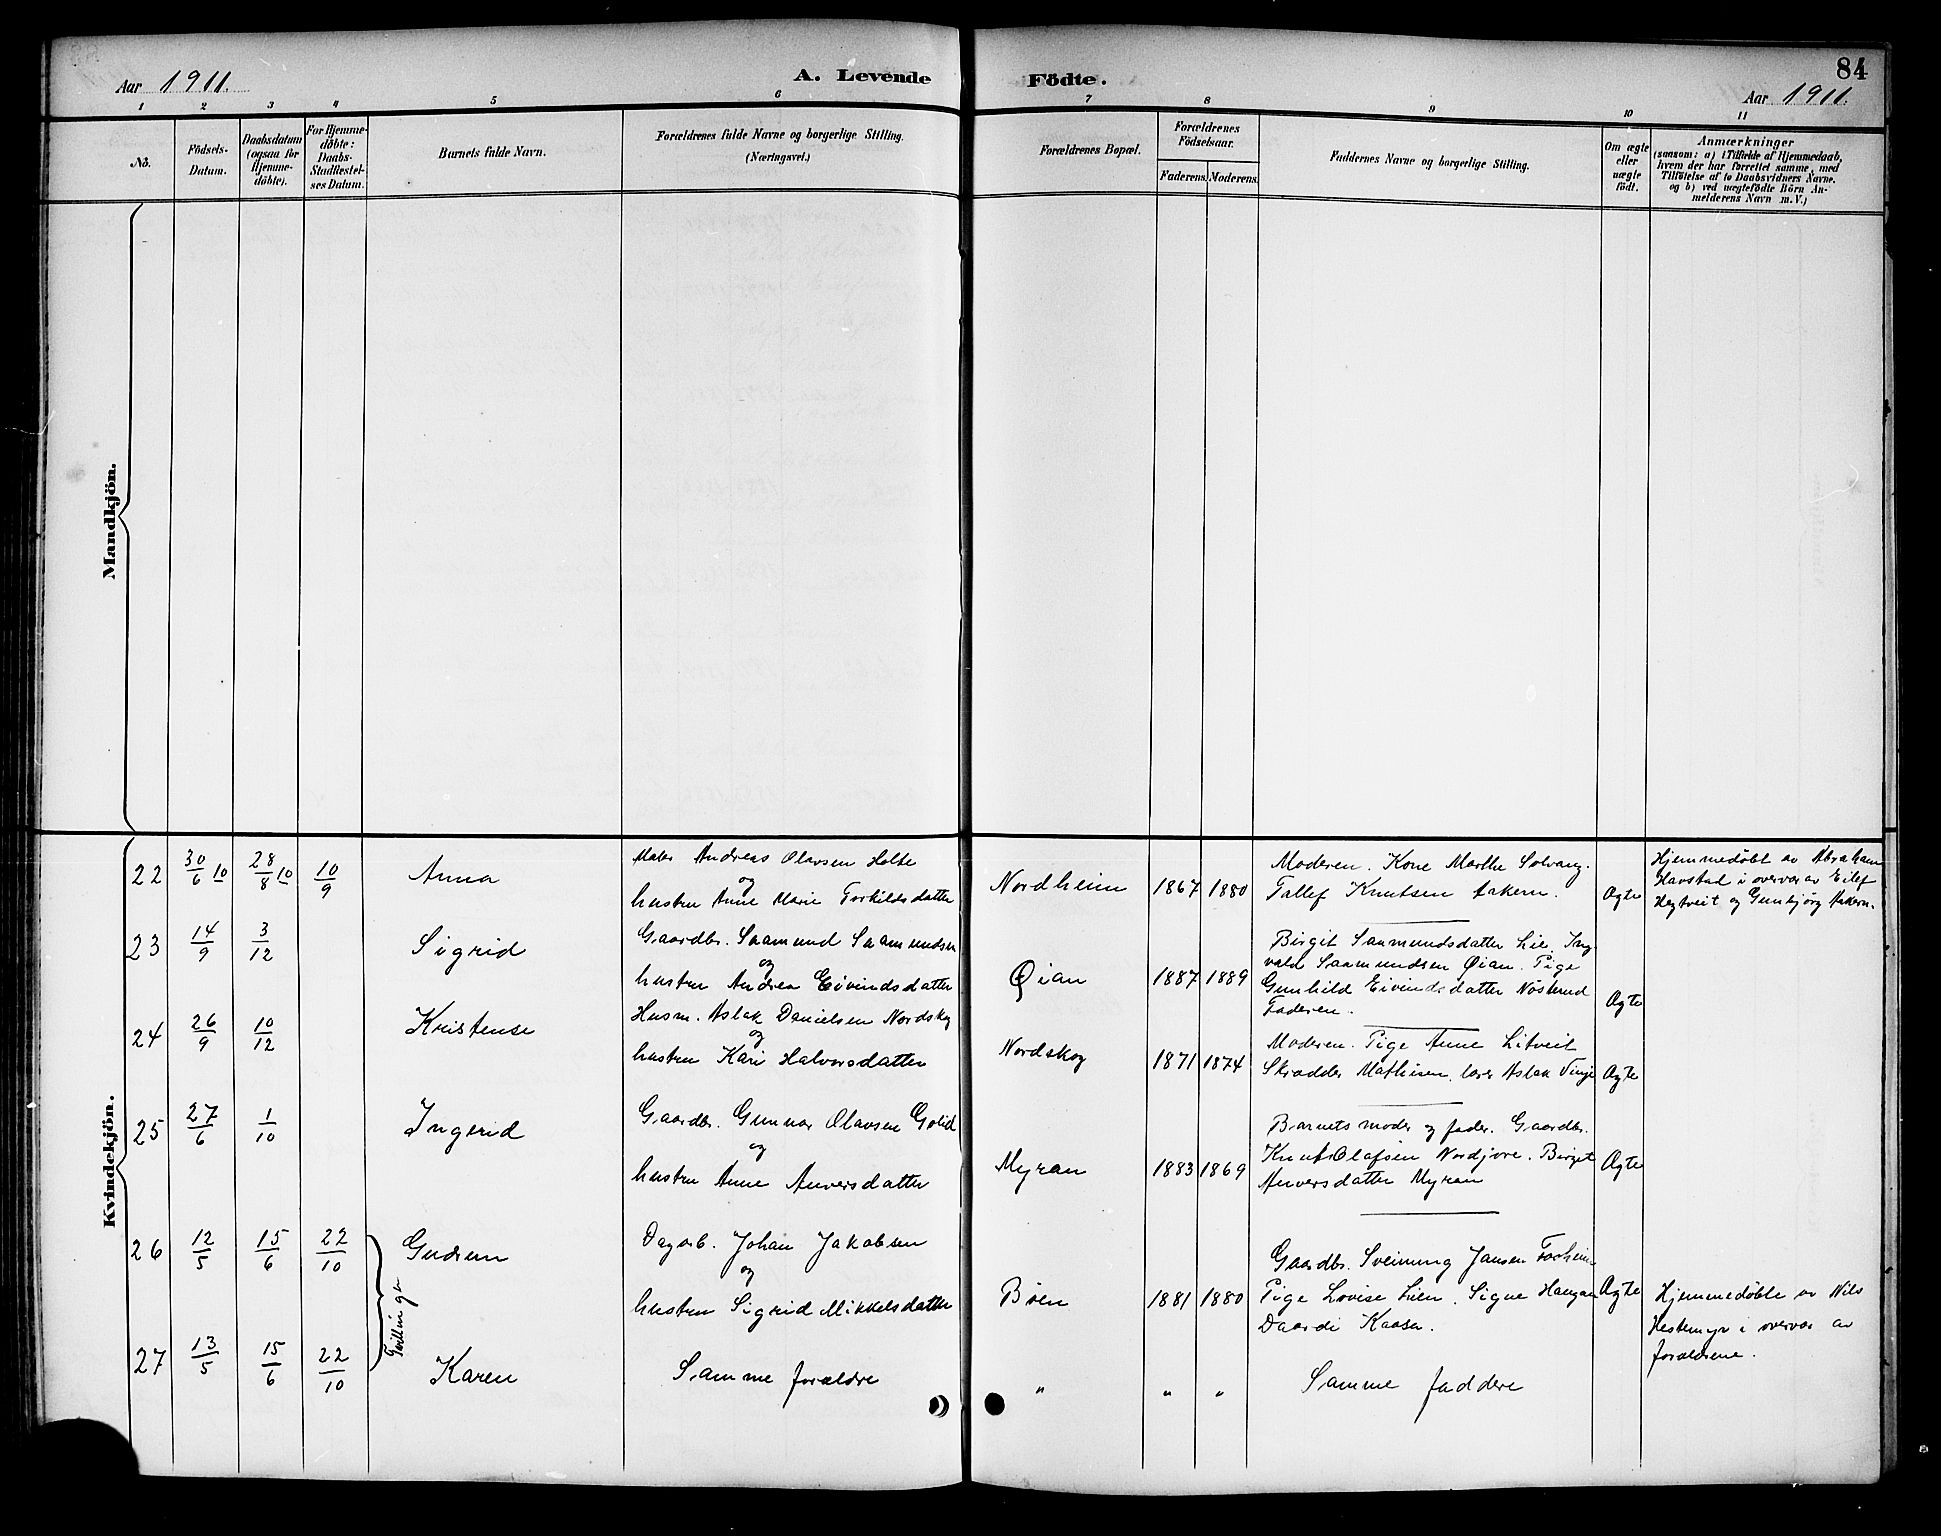 Aar 1911.
A. Levende Födte.
84
Aar 1911.
1 2 3 4 5 6 7 8 9 10 11
No.
Födsels-
Datum.
Daabsdatum
(ogsaa for
Hjemme-
döbte).
For Hjemme-
döbte:
Daabs-
Stadfæstel-
ses Datum.
Barnets fulde Navn.
Forældrenes fulde Navne og borgerlige Stilling.
(Næringsvei.)
Forældrenes Bopæl.
Forældrenes
Födselsaar.
Faderens. Moderens.
Faddernes Navne og borgerlige Stilling.
Om ægte
eller
uægte
födt.
Anmærkninger
(saasom: a) i Tilfælde af Hjemmedaab,
hvem der har forrettet samme, med
Tilföielse af to Daabsvidners Navne.
og b) ved uægtefödte Börn An-
melderens Navn m. V.)
Mandkjön.
Kvindekjön.
22 30/6 10 28/8 10 10/9 Anna
Maler Andreas Olavsen Holte
og
hustru Anne Marie Torkildsdatter
Nordheim 1867 1880
Moderen. Kone Marthe Solvang.
Tallef Knutsen Aakern.
Ægte
Hjemmedøbt av Abraham
Havstad i overvær av Eilef
Hegtveit og Gunbjørg Aakern.
23 14/9 3/12 Sigrid
Gaardbr. Saamund Saamundsen
og
hustru Andrea Eivindsdatter
Øian 1887 1889
Birgit Saamundsdatter Lie. Ing-
vald Saamundsen Øian. Pige
Gunhild Eivindsdatter Nøsterud
Faderen.
Ægte
24 26/9 10/12 Kristense
Husm. Aslak Danielsen Nordskog
og
hustru Kari Halvorsdatter
Nordskog 1871 1874
Moderen. Pige Anne Litveit
Skrædder Mathisen. lærer Aslak Vinje
Ægte
25 27/6 1/10 Ingerid
Gaardbr. Gunnar Olavsen Golid
og
hustru Anne Anversdatter
Myran 1883 1869
Barnets moder og fader. Gaardbr.
Knut Olafsen Nordjore. Birget
Anversdatter Myran
Ægte
26 12/5 15/6 22/10 Gudrun
Tvillinger
Dagarb. Johan Jakobsen
og
hustru Sigrid Mikkelsdatter
Bøen 1881 1880
Gaardbr. Sveinung Jansen
Pige Lovise Lien. Signe Haugan
Kaasa.
Ægte
Hjemmedøbte av Nils
Hestemyr i overvær av
forældrene.
27 13/5 15/6 22/10 Karen
Samme forældre
" " "
Samme faddere